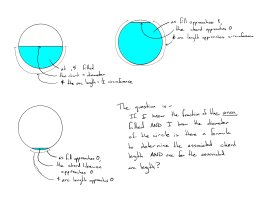 at .5 filled
the chord = diameter
& the arc length = ½ circumference
as fill approaches 1,
the chord approaches 0
& arc length approaches circumference
as fill approaches 0,
the chord
approaches 0
& arc length approaches 0
The question is -
If I know the fraction of the area
filled AND I know the diameter
of the circle is there a formula
to determine the associated chord
length AND one for the associated
arc length?